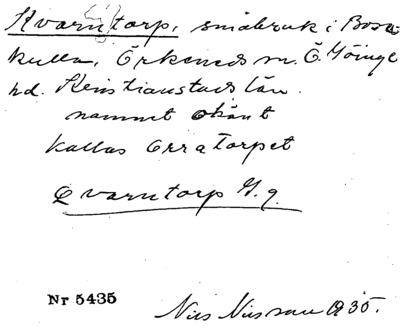 Kvarntorp, småbruk i Bosa
kulla, Örkeneds sn. Ö. Göinge
hd. Kristianstads län.
namnet okänt
kallas Örratorpet
Qvarntorp G.q.
Nr 5435
Nils Nilsson 1935.